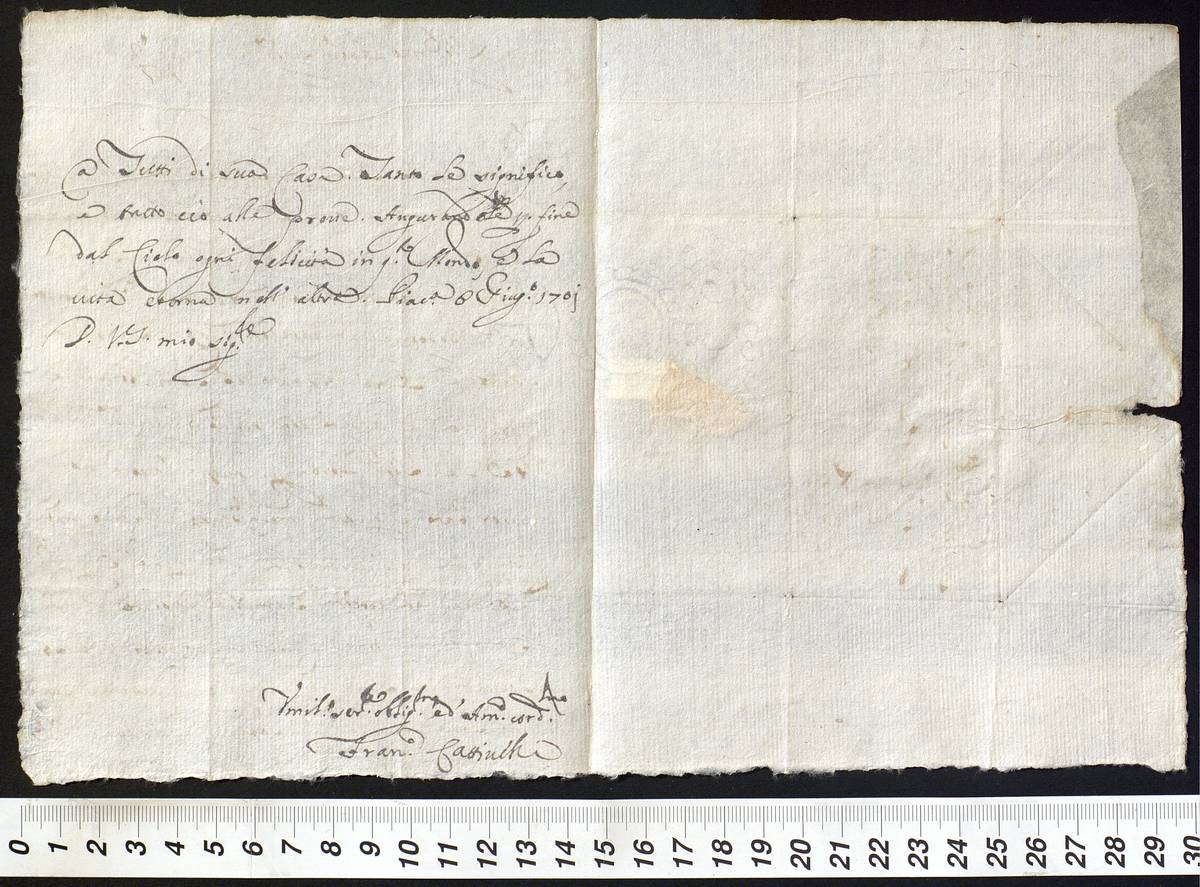 a Tutti di sua Casa. Tanto le significo,
e tutto ciò alle prove. Augurandole p. fine
dal Cielo ogni felicità in q.to Mondo, e la
vita eterna nell' altro. Piac.a 8 Giug.o 1701
D. V.S. mio sig.re
Vmil.o ser.re oblig.mo ed' Am.o cord.mo
Fran.o
0 1 2 3 4 5 6 7 8 9 10 11 12 13 14 15 16 17 18 19 20 21 22 23 24 25 26 27 28 29 30